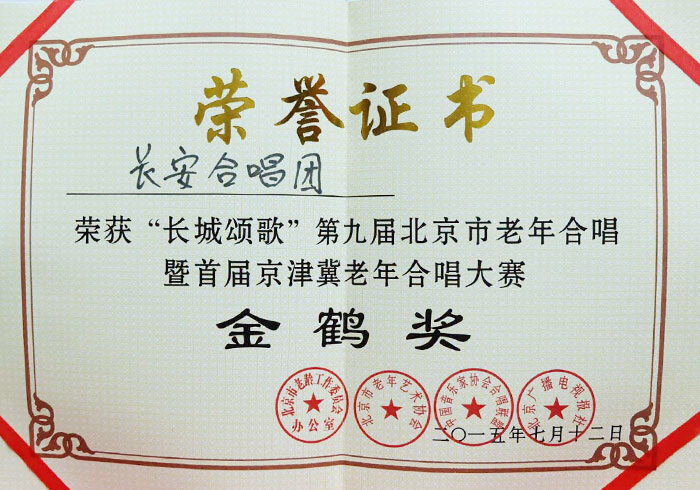 荣誉证书
长安合唱团
荣获“长城颂歌”第九届北京市老年合唱
暨首届京津冀老年合唱大赛
金鹤奖
北京市老龄工作委员会
办公室
北京市老年艺术协会
中国音乐家协会合唱联盟
北京广播电视报社
二〇一五年七月十二日